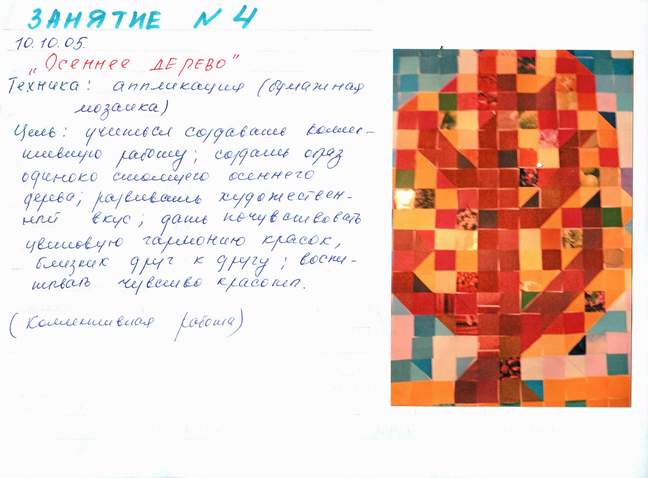 ЗАНЯТИЕ № 4
10.10.05.
„Осеннее дерево"
Техника: аппликация (бумажная
мозаика)
Цель: учиться создавать коллек-
тивную работу; создать образ
одиноко стоящего осеннего
дерева; развивать художествен-
ный вкус; дать почувствовать
цветовую гармонию красок,
близких друг к другу; воспи-
тывать чувство красоты.
(Коллективная работа)